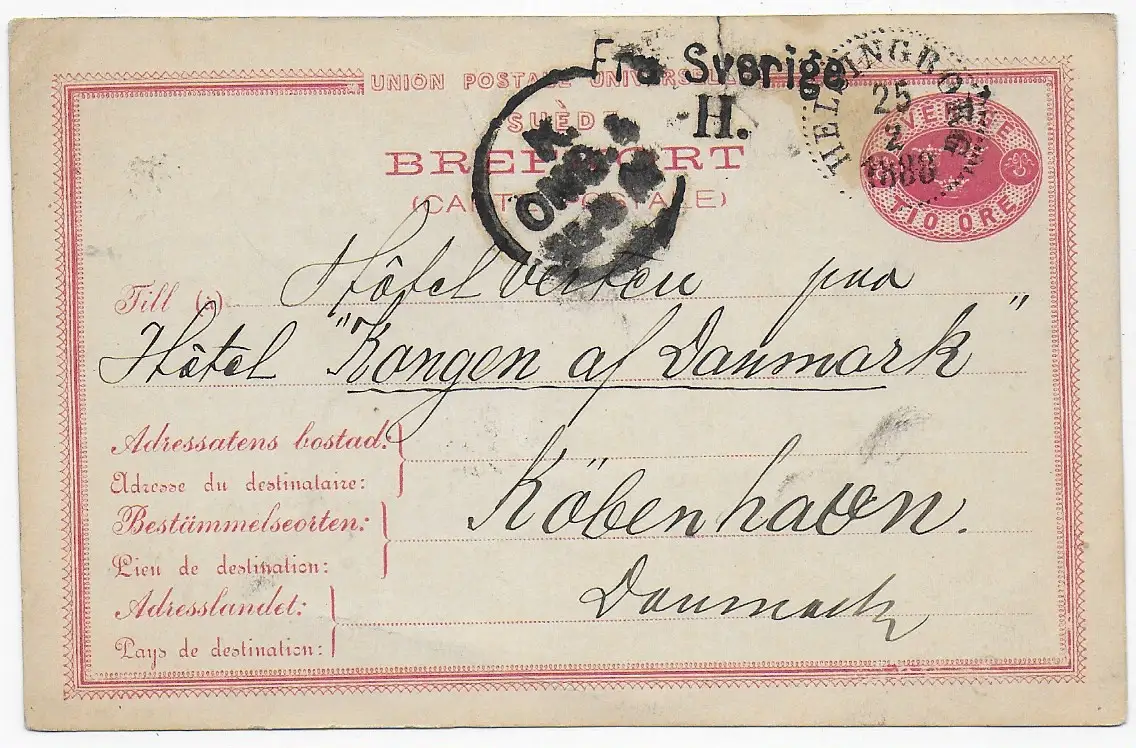 Fra Sverige
H.
HELSINGBORG
25
2
1888
UNION POSTALE UNIVERSELLE
SUÈDE
BREFKORT
(CARTE POSTALE)
SVERIGE
TIO ÖRE
K.
OMB. 4
Till (à)
Hôtel Verten paa
Hôtel "Kongen af Danmark"
Adressatens bostad:
Adresse du destinataire:
Bestämmelseorten:
Lieu de destination:
Köbenhavn.
Adresslandet:
Pays de destination:
Danmark